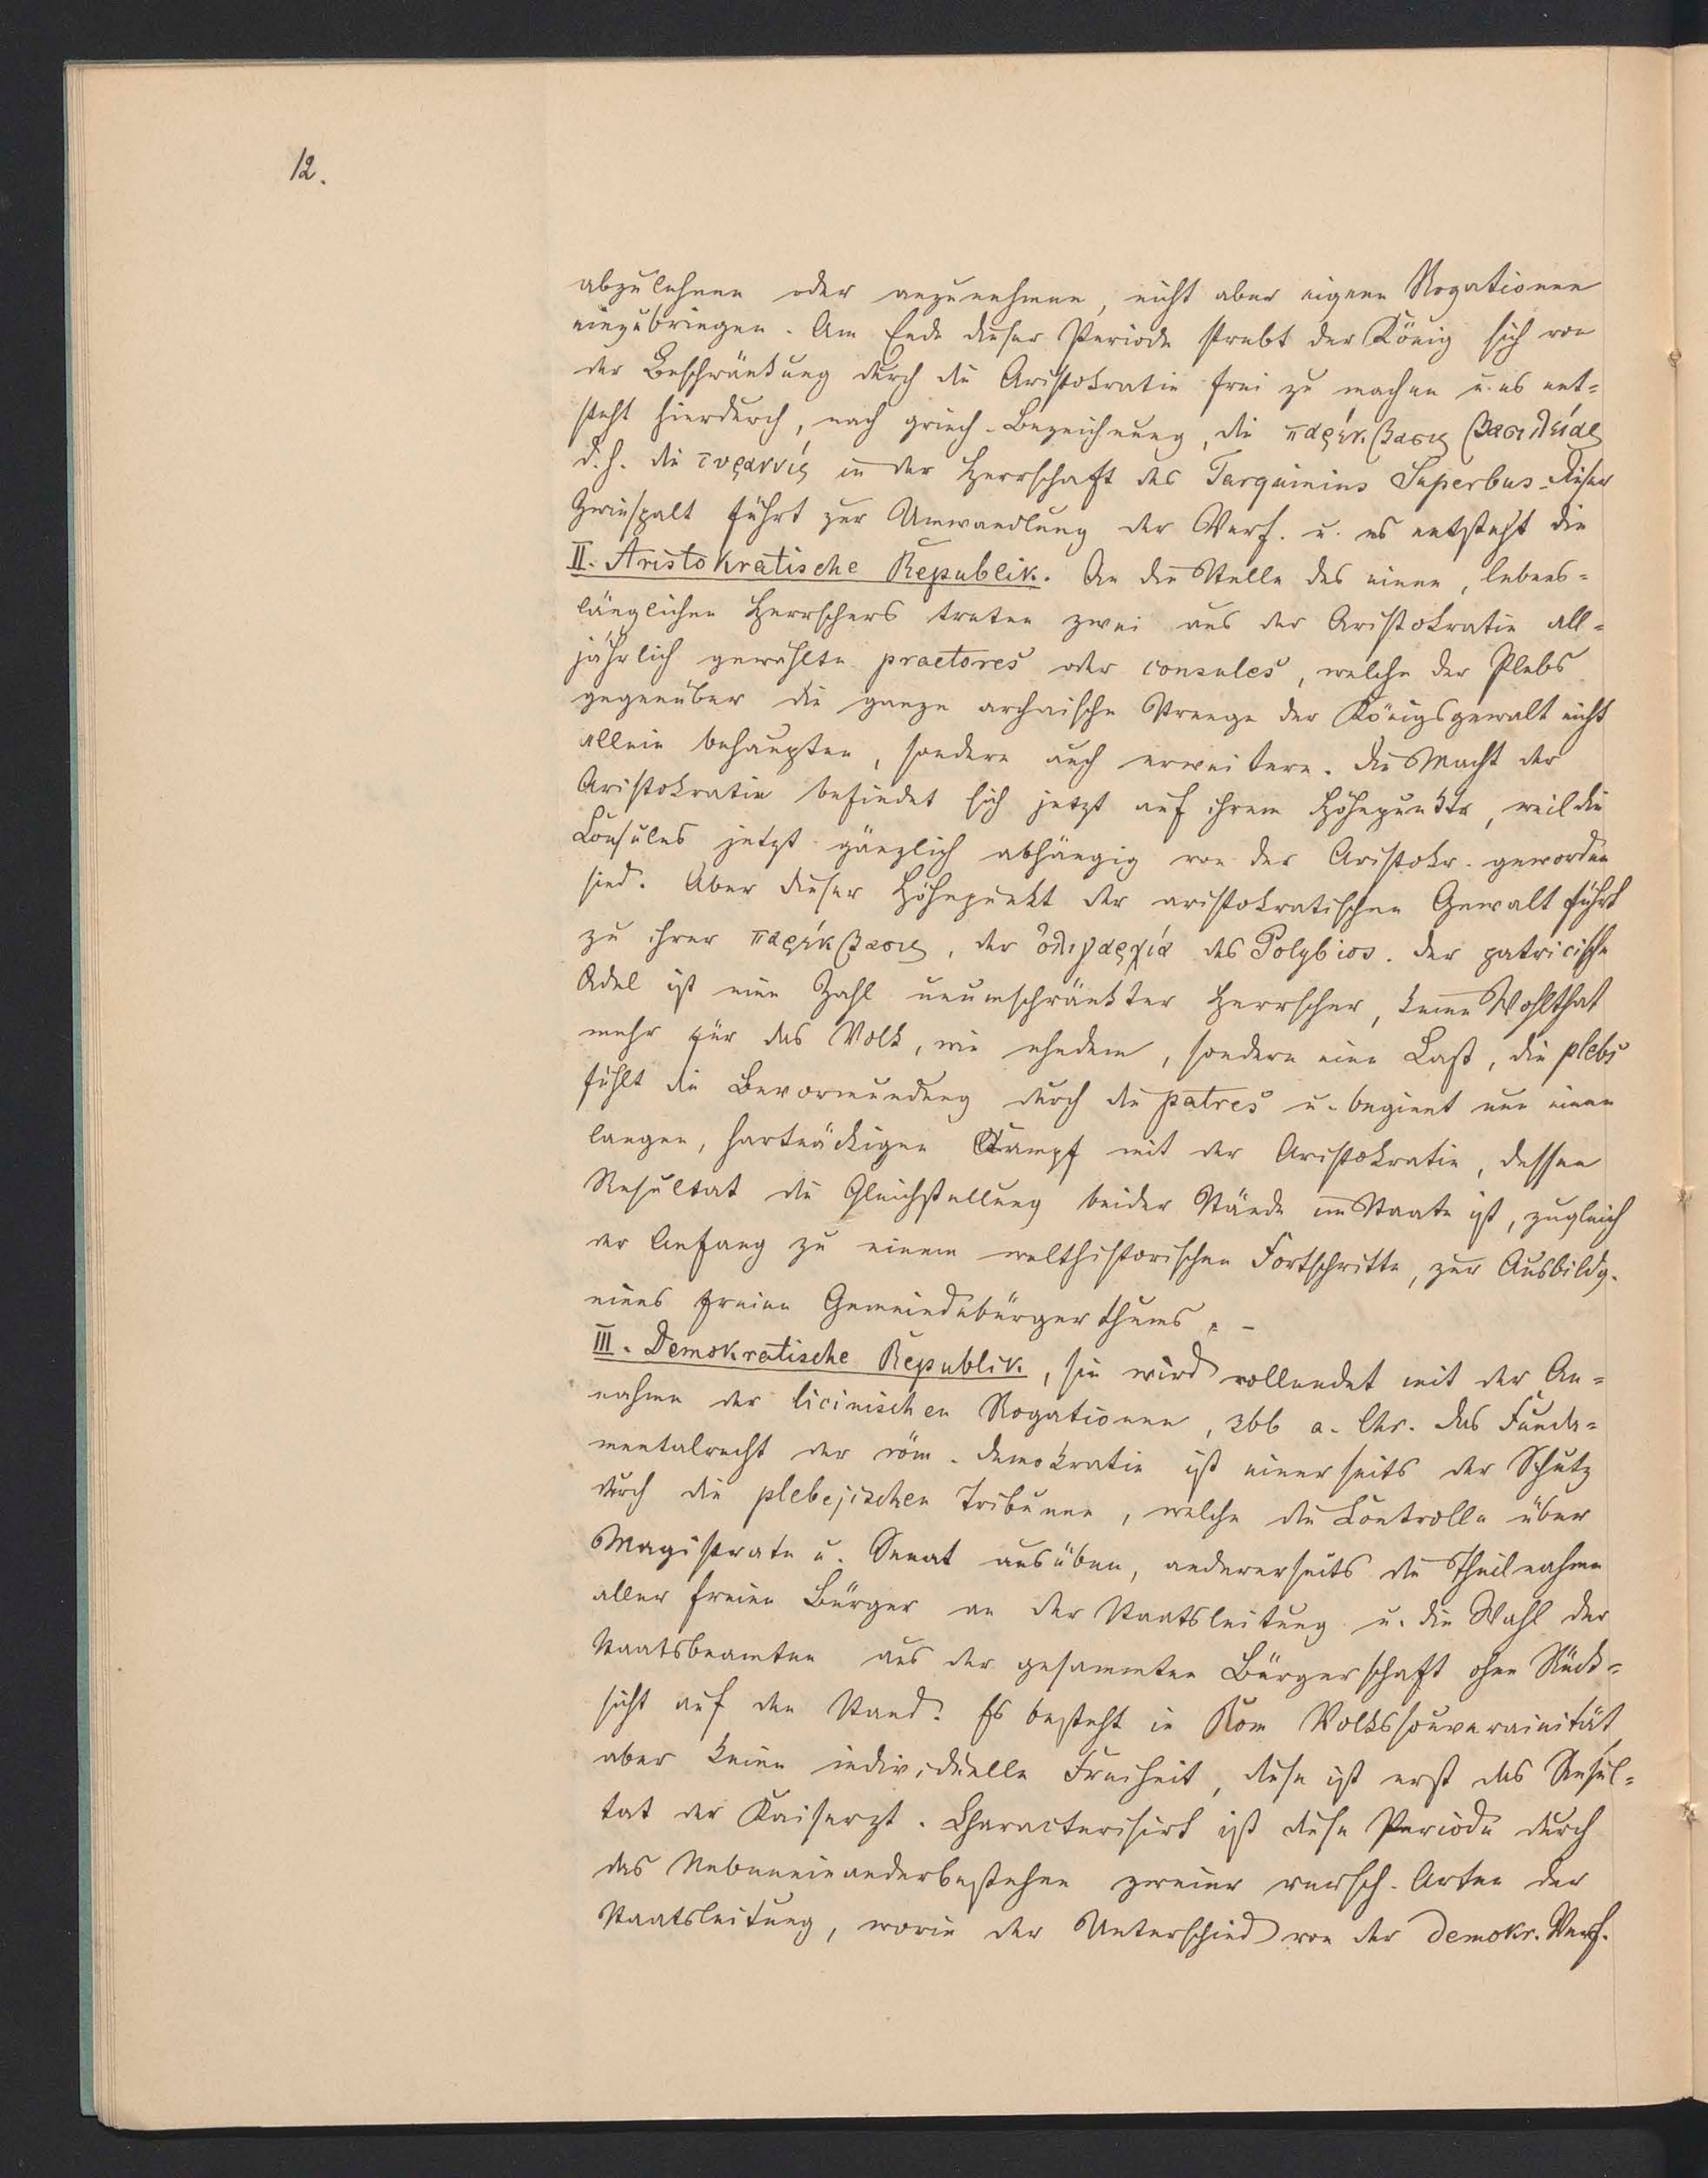 12.
abzulehnen oder anzunehmen, nicht aber eigene Rogationen
einzubringen. Am Ende dieser Periode strebt der König sich von
der Beschränkung durch die Aristokratie frei zu machen u. es ent=
steht hierdurch, nach griech. Bezeichnung, die παρέκβασις βασιλείας
d. h. die τυραννίς in der Herrschaft des Tarquinius Superbus. Dieser
Zwiespalt führt zur Umwandlung der Verf. u. es entsteht die
II. Aristokratische Republik. An die Stelle des einen, lebens=
länglichen Herrschers treten zwei aus der Aristokratie all=
jährlich gewählte praetores oder consules, welche der Plebs
gegenüber die ganze archaische Strenge der Königsgewalt nicht
allein behaupten, sondern auch erweitern. Die Macht der
Aristokratie befindet sich jetzt auf ihrem Höhepunkte, weil die
Consules jetzt gänzlich abhängig von der Aristokr. geworden
sind. Aber dieser Höhepunkt der aristokratischen Gewalt führt
zu ihrer παρέκβασις, der ὀλιγαρχία des Polybios. Der patricische
Adel ist eine Zahl unumschränkter Herrscher, keine Wohlthat
mehr für das Volk, wie ehedem, sondern eine Last, die plebs
fühlt die Bevormundung durch die patres u. beginnt nun einen
langen, hartnäckigen Kampf mit der Aristokratie, dessen
Resultat die Gleichstellung beider Stände im Staate ist, zugleich
der Anfang zu einem welthistorischen Fortschritte, zur Ausbildg.
eines freien Gemeindebürgerthums. –
III. Demokratische Republik, sie wird vollendet mit der An=
nahme der licinischen Rogationen, 366 a. Chr. Das Funda=
mentalrecht der röm. Demokratie ist einerseits der Schutz
durch die plebejischen Tribunen, welche die Controlle über
Magistrate u. Senat ausüben, andererseits die Theilnahme
aller freien Bürger an der Staatsleitung u. die Wahl der
Staatsbeamten aus der gesammten Bürgerschaft ohne Rück=
sicht auf den Stand. Es besteht in Rom Volkssouverainität,
aber keine individuelle Freiheit, diese ist erst das Resul=
tat der Kaiserzt. Characterisirt ist diese Periode durch
das Nebeneinanderbestehen zweier versch. Arten der
Staatsleitung, worin der Unterschied von der demokr. Verf.